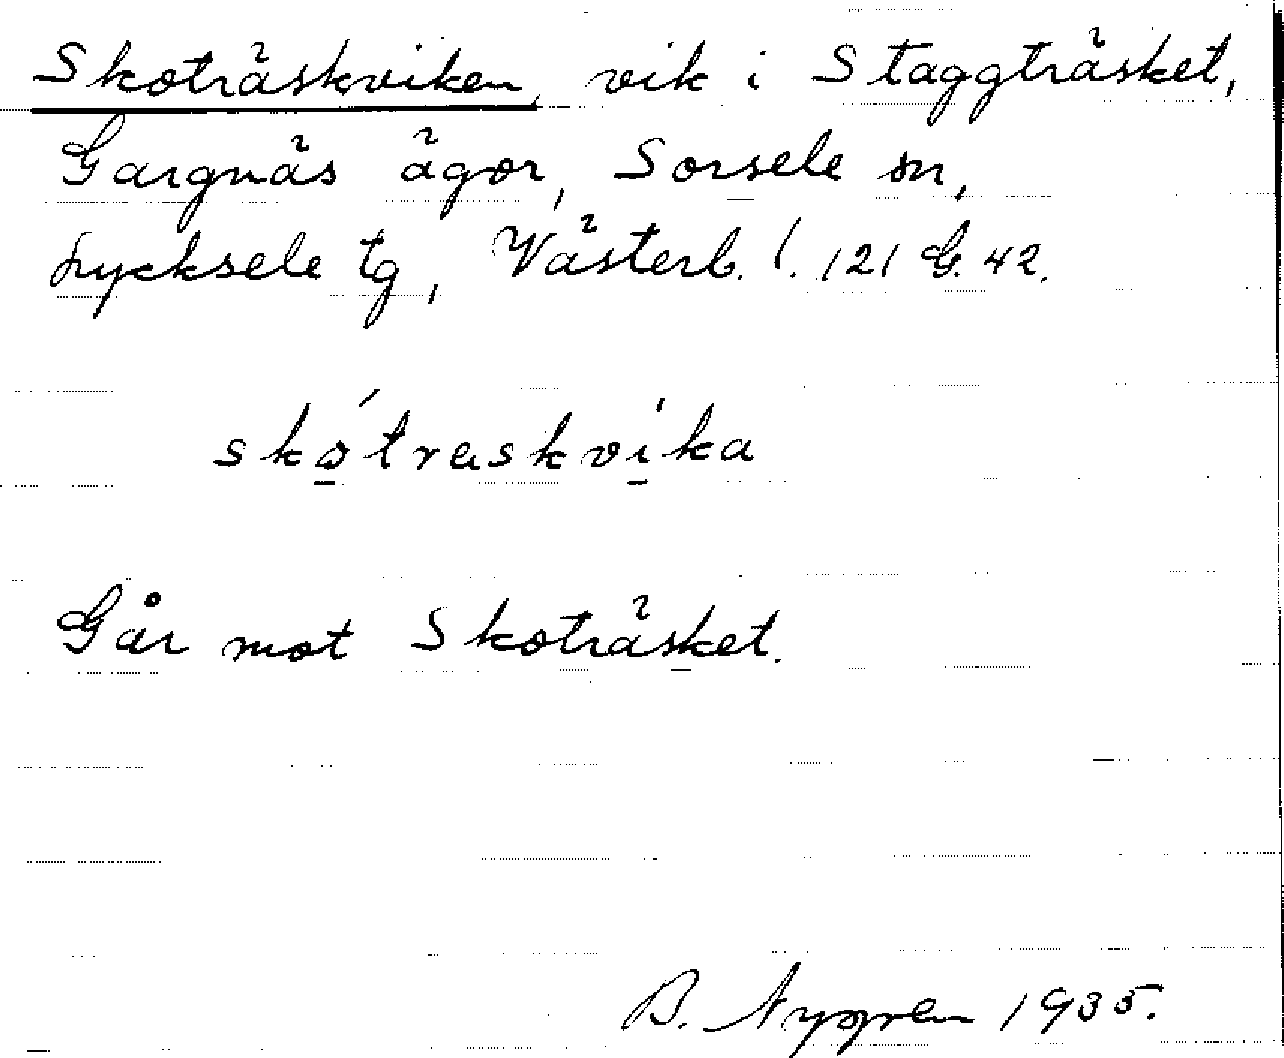 Skoträskviken, vik i Staggträsket,
Gargnäs ägor, Sorsele sn,
Lycksele tg, Västerb. l. 121 G. 42.
skó̱traskvi̱'ka
Går mot Skoträsket.
B. Nygren 1935.